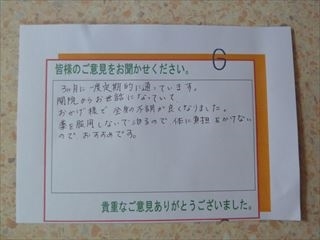 G
皆様のご意見をお聞かせください。
3ヵ月に一度定期的に通っています。
開院からお世話になっていて
おかげ様で全身の不調が良くなりました。
薬を服用しないで治るので体に負担をかけない
のでおすすめです。
貴重なご意見ありがとうございました。